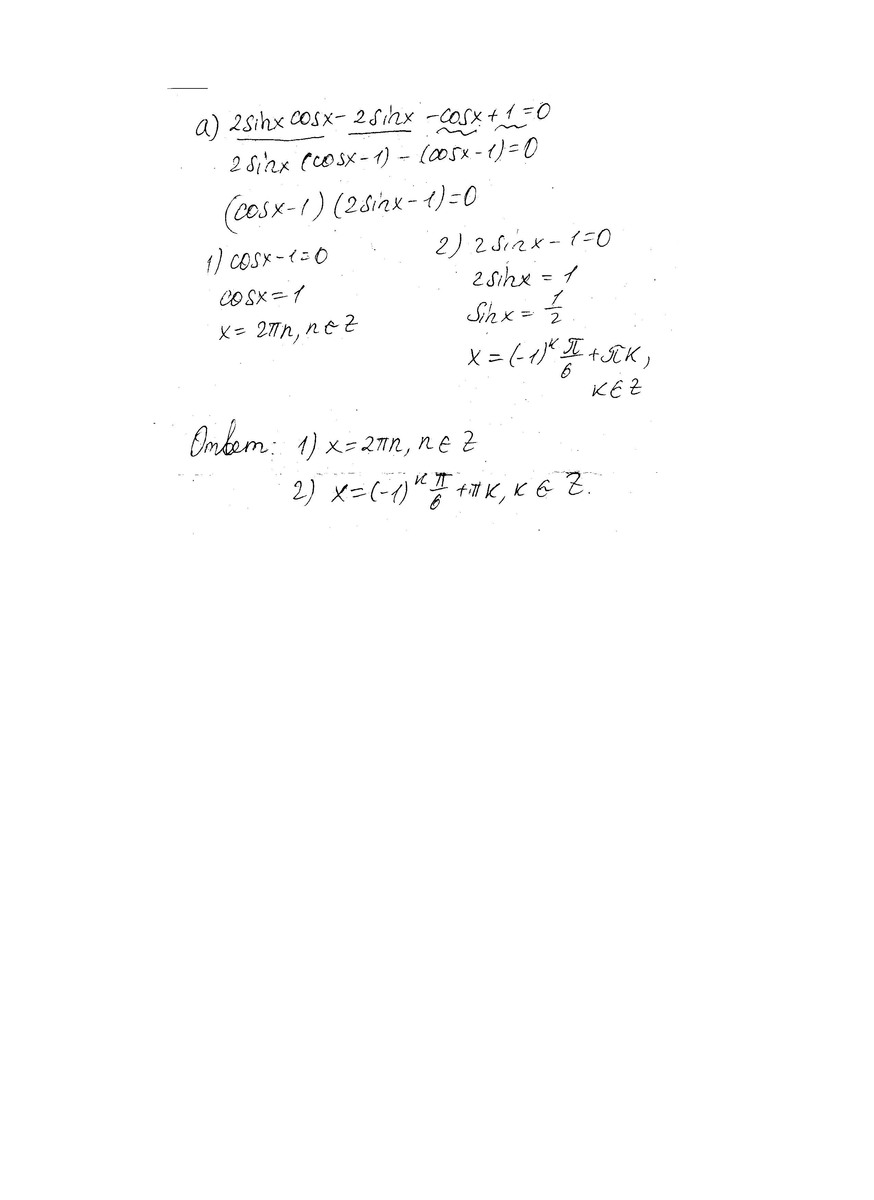 а) 2sinx cosx - 2sinx - cosx + 1 = 0
2sinx (cosx - 1) - (cosx - 1) = 0
(cosx - 1)(2sinx - 1) = 0
1) cosx - 1 = 0
cosx = 1
x = 2πn, n ∈ Z
2) 2sinx - 1 = 0
2sinx = 1
sinx = 1/2
x = (-1)^к π/6 + πк,
к ∈ Z
Ответ: 1) x = 2πn, n ∈ Z
2) x = (-1)^к π/6 + πк, к ∈ Z.